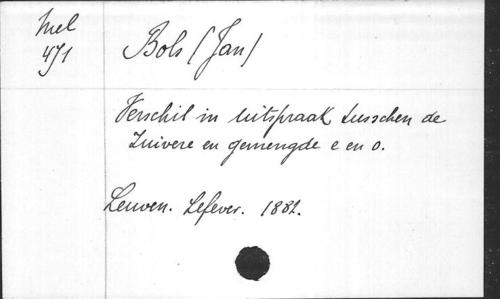 Mel
471
Bols (Jan)
Verschil in uitspraak tusschen de
Zuivere en gemengde e en o.
Leuven. Lefever. 1882.